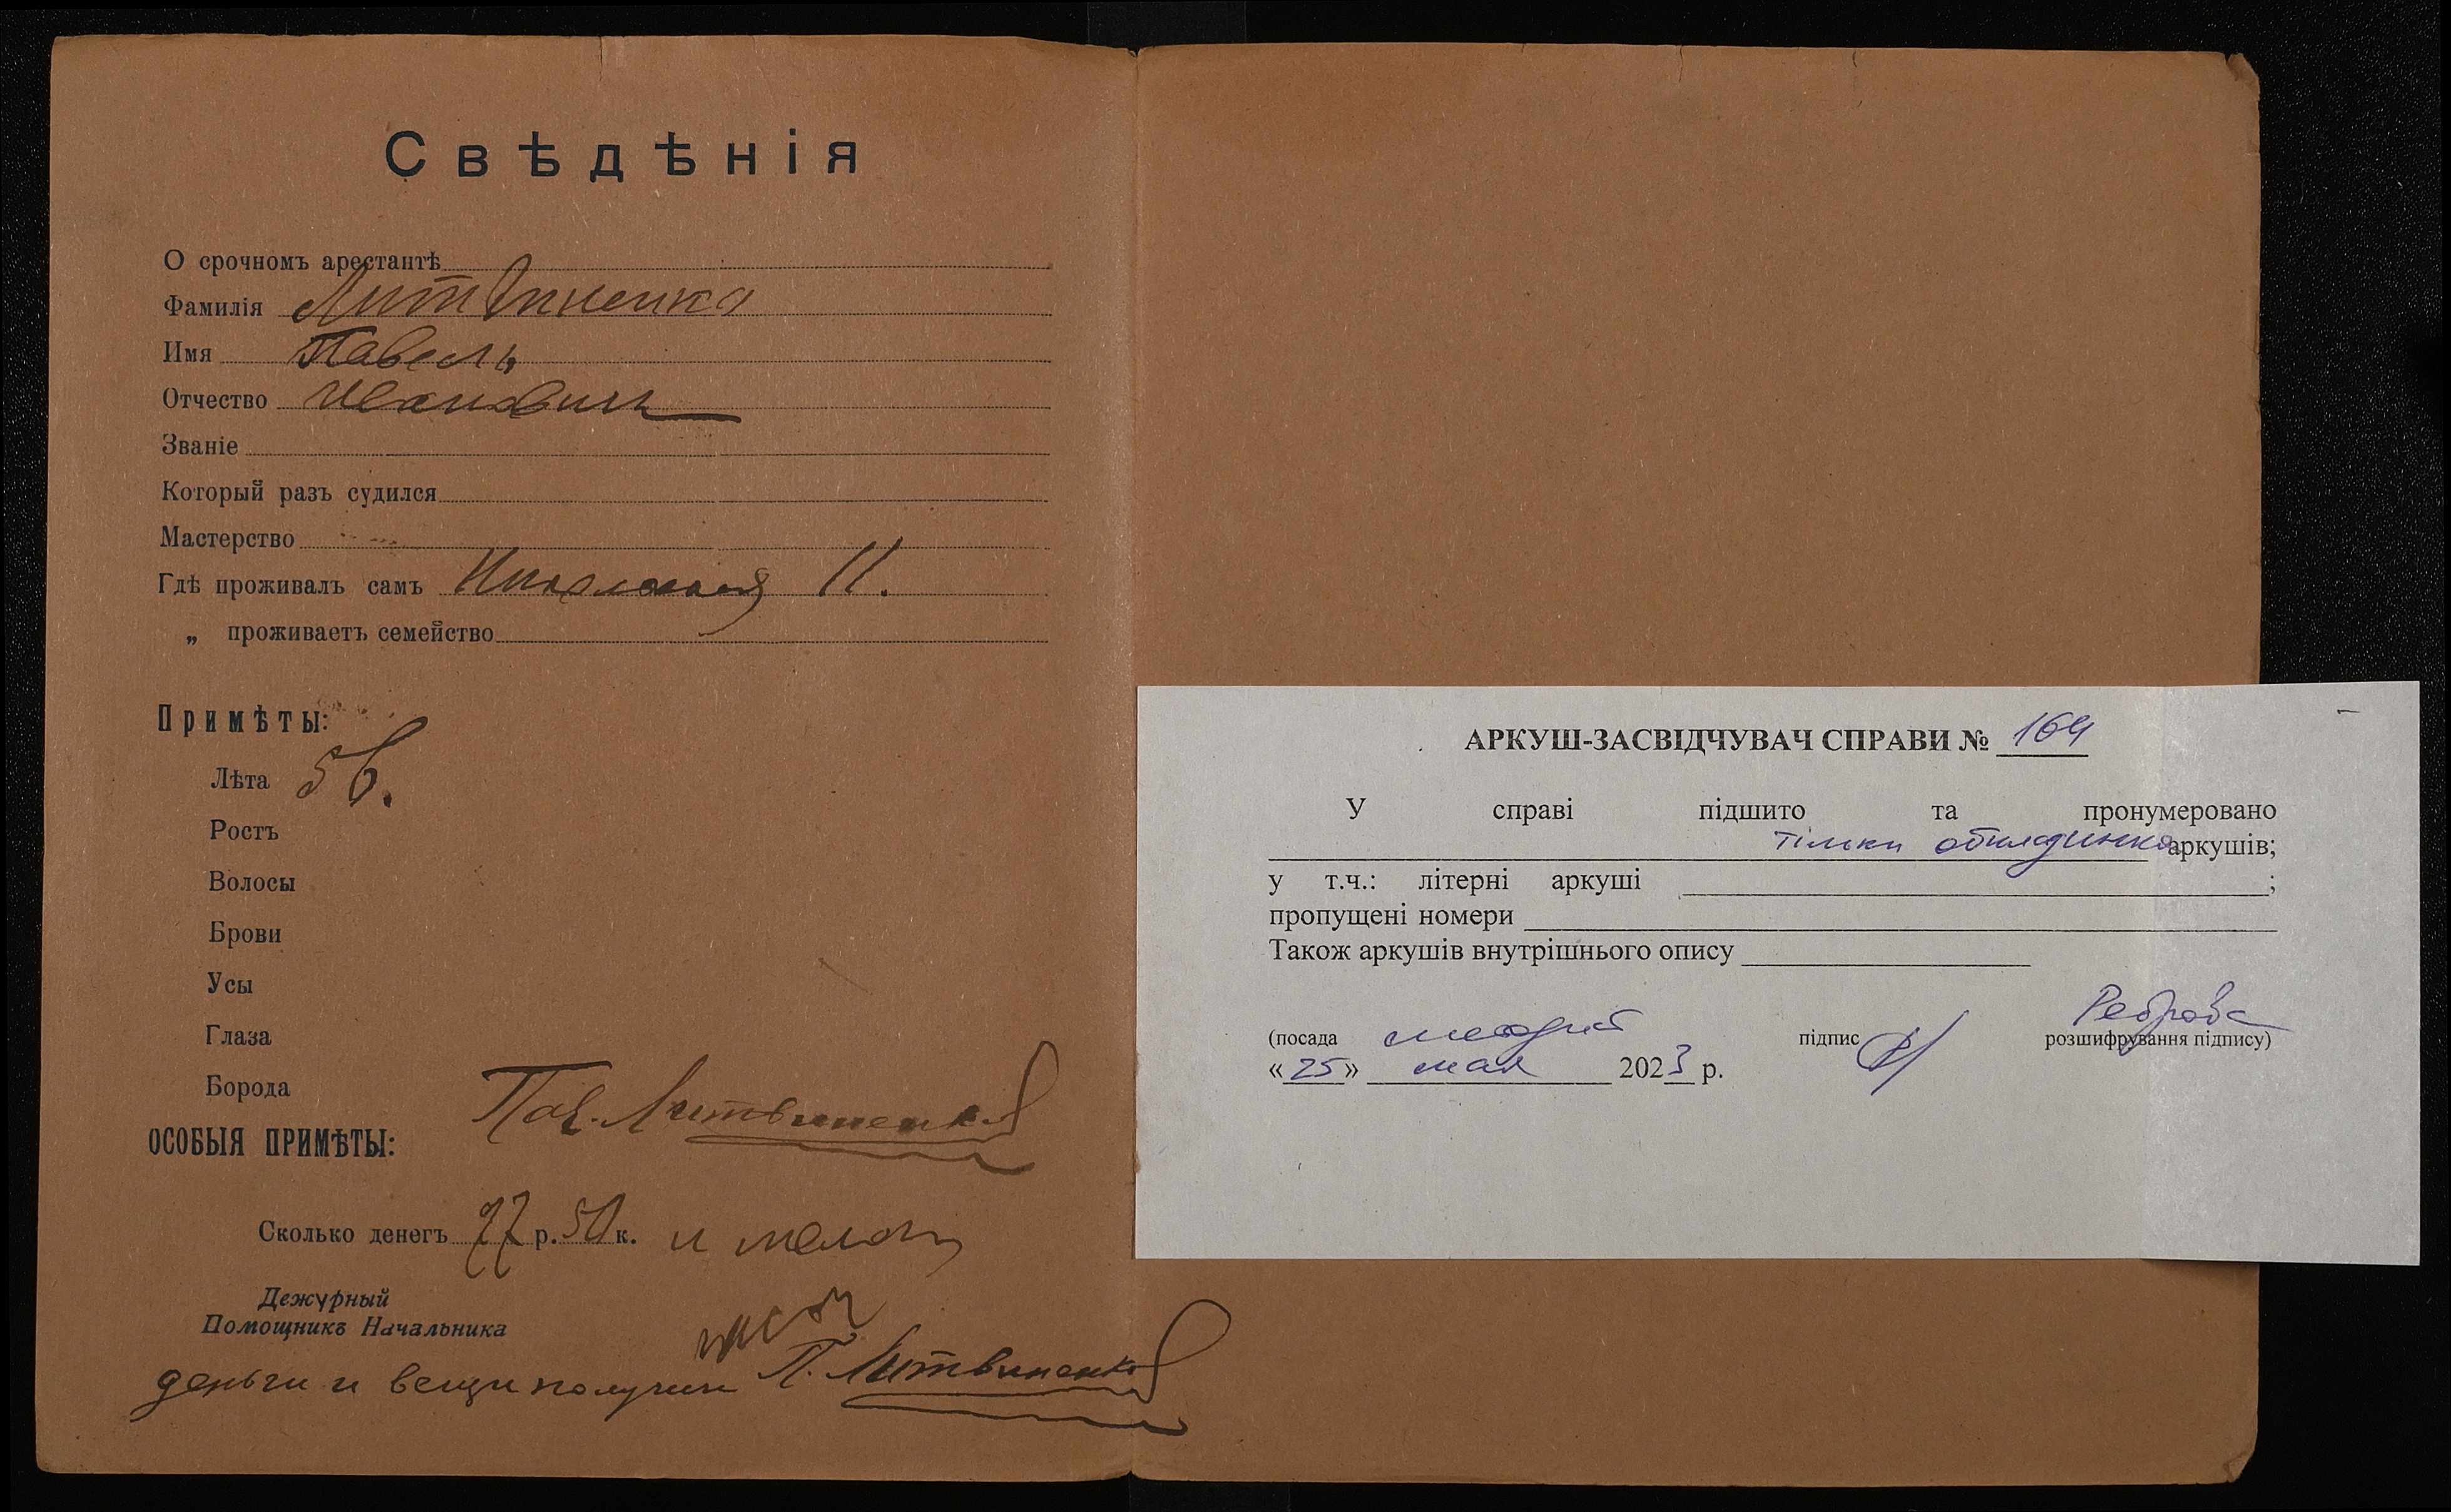 Свѣдѣнія
О срочномъ арестантѣ
Фамилія Литвиненко
Имя Павелъ
Отчество Ивановичъ
Званіе
Который разъ судился
Мастерство
Гдѣ проживалъ самъ 11.
„ проживаетъ семейство
Примѣты:
Лѣта 56.
Ростъ
Волосы
Брови
Усы
Глаза
Борода
Пав. Литвиненко
ОСОБЫЯ ПРИМѢТЫ:
Сколько денегъ 77 р. 50 к. и мелочь
Дежурный
Помощникъ Начальника
деньги и вещи получил П. Литвиненко
АРКУШ-ЗАСВІДЧУВАЧ СПРАВИ № 164
У справі підшито та пронумеровано
тільки обкладинка аркушів;
у т.ч.: літерні аркуші ;
пропущені номери
Також аркушів внутрішнього опису
(посада підпис Реброва розшифрування підпису)
«25» мая 2023 р.